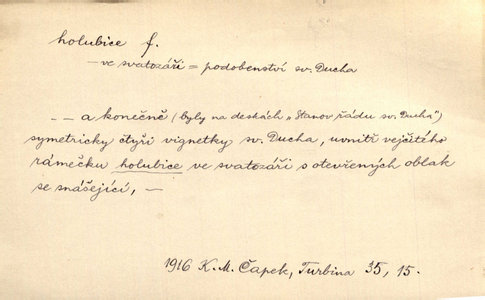 holubice f.
— ve svatozáři = podobenství sv. Ducha
— — a konečně (byly na deskách „Stanov řádu sv. Ducha")
symetricky čtyři vignetky sv. Ducha, uvnitř vejčitého
rámečku holubice ve svatozáři s otevřených oblak
se snášející, —
1916 K. M. Čapek, Turbina 35, 15.